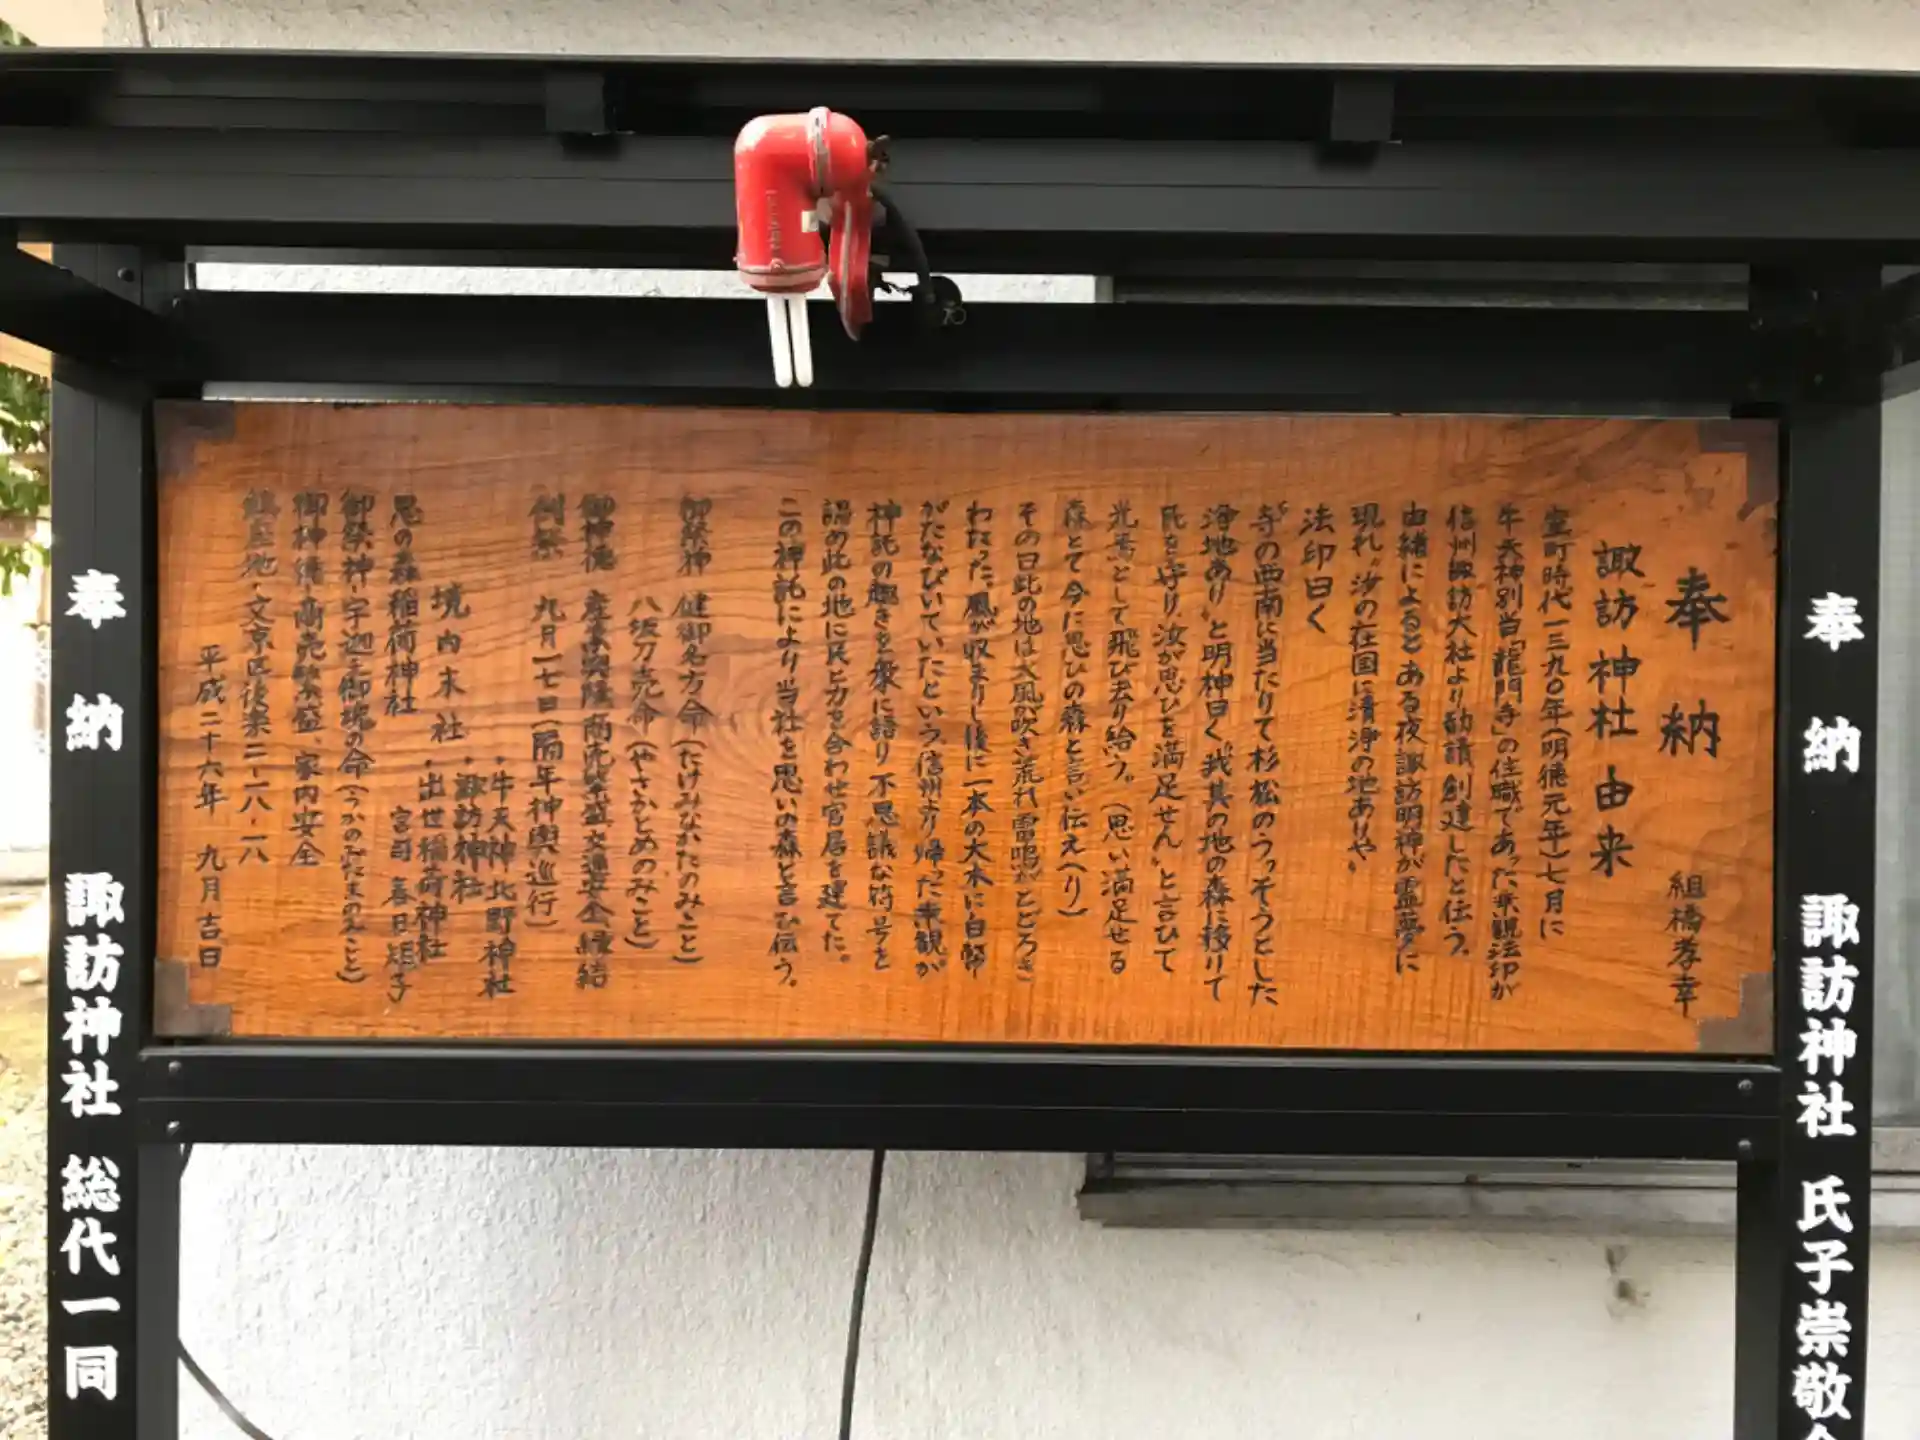 奉納
諏訪神社
氏子崇敬
奉納
組橋孝幸
諏訪神社由来
室町時代一三九〇年(明徳元年)七月に
牛天神別当「龍門寺」の住職であった乗観法印が
信州諏訪大社より勧請創建したと伝う。
由緒によるとある夜諏訪明神が霊夢に
現れ〝汝の在国に清浄の地ありや〟
法印曰く
〝寺の西南に当たりて杉松のうっそうとした
浄地あり〟と明神曰く〝我其の地の森に移りて
氏を守り、汝が思ひを満足せん〟と言ひて
光をして飛び去り給う。(思い満足せる
森とて今に思ひの森と言い伝えへり)
その日此の地は大風が吹き荒れ雷鳴がとどろき
わたった。風が収まりし後に一本の大木に白幣
がたなびいていたという。信州より帰った乗観が
神託の趣きを衆に語り不思議な符号を
認め此の地に民と力を合わせ宮居を建てた。
この神託により当社を思いの森と言ひ伝う。
御祭神 健御名方命(たけみなかたのみこと)
八坂刀売命(やさかとめのみこと)
御神徳 産業興隆 商売繁盛 交通安全 縁結
例祭 九月二七日(隔年神輿巡行)
境内末社
・牛天神北野神社
・諏訪神社
・出世稲荷神社
思の森稲荷神社 宮司 春日 子
御祭神・宇迦之御魂の命(うかのみたまのみこと)
御神徳・商売繁盛、家内安全
鎮座地・文京区後楽二-一八-一八
平成二十六年 九月吉日
奉納
諏訪神社
総代一同